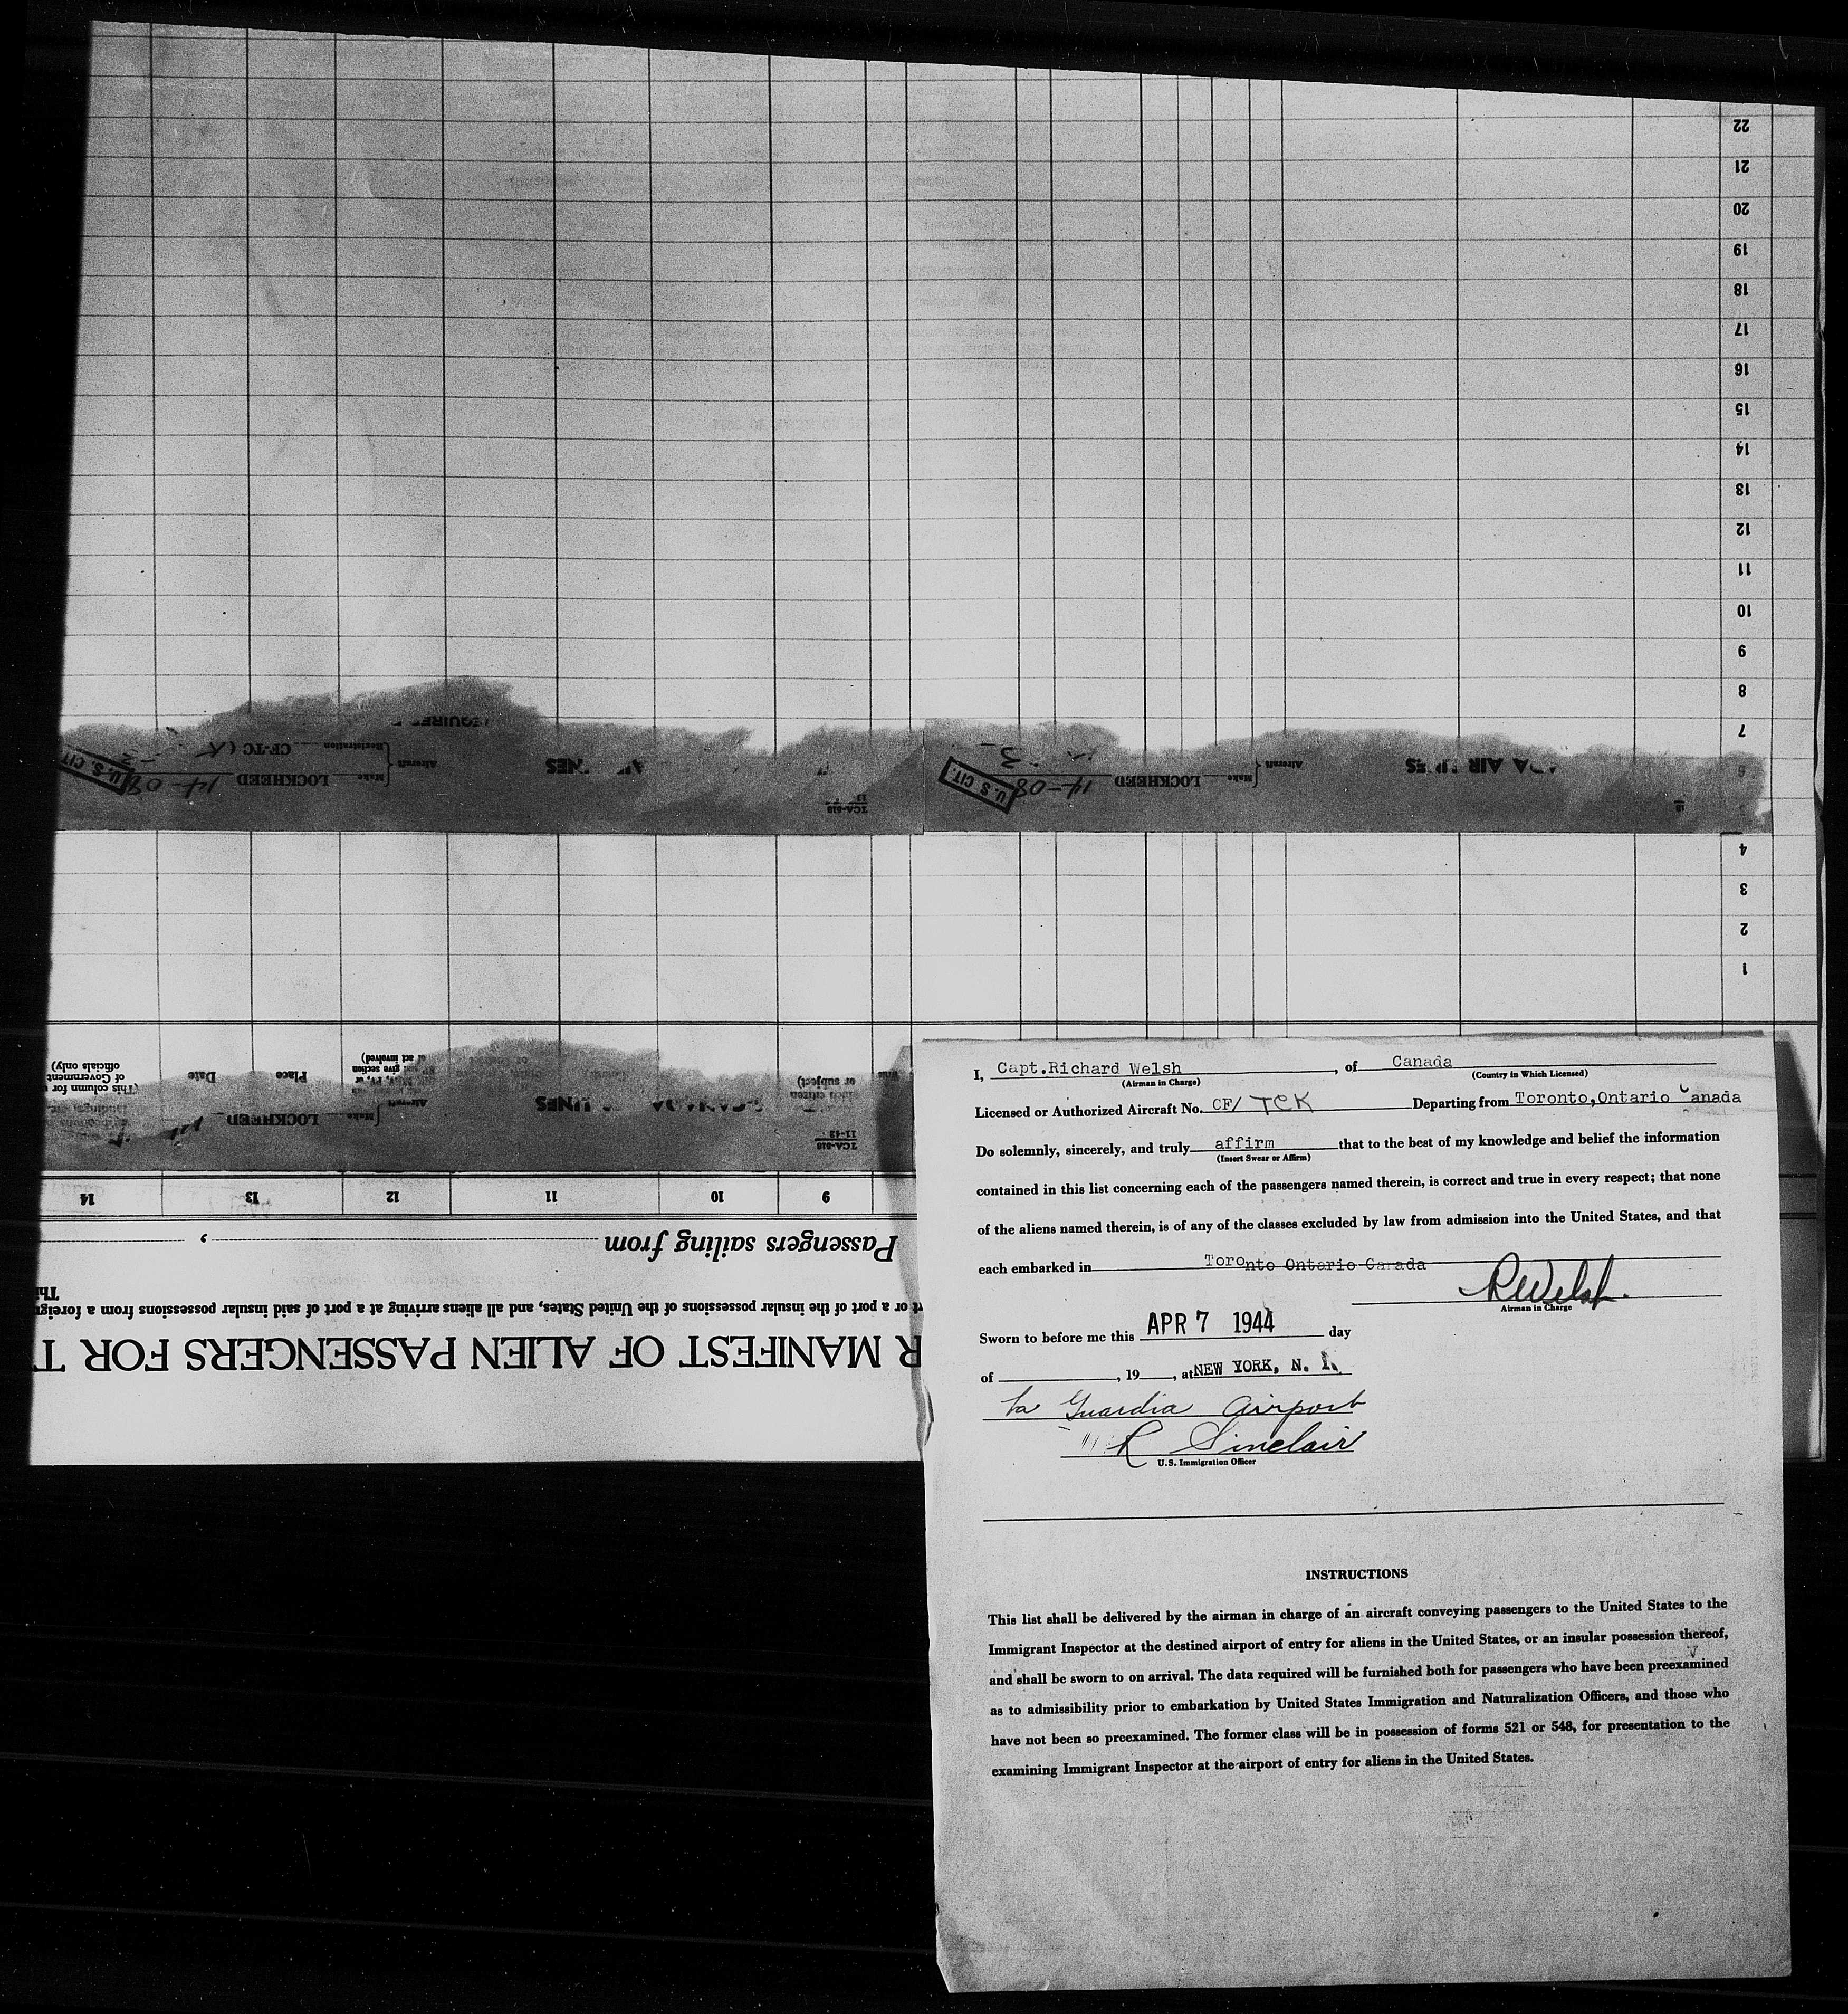 22
21
20
19
18
17
16
15
14
13
12
11
10
9
8
7
Registration CF-TC
Aircraft
U.S. CIT
14-08 LOCKHEED Make
TCA-518
U.S. CIT.
14-08 LOCKHEED Make
Aircraft
AIR LINES
6
4
3
2
1
(This column for
of Government
officials only)
Date
Place
or subject)
LOCKHEED Make
Aircraft
TCA-518
11-42
14
13
12
11
10
9
Passengers sailing from
or a port of the insular possessions of the United States, and all aliens arriving at a port of said insular possessions from a foreign
MANIFEST OF ALIEN PASSENGERS FOR T
I, Capt.Richard Welsh, of Canada
(Airman in Charge) (Country in Which Licensed)
Licensed or Authorized Aircraft No. CF/ TCK Departing from Toronto,Ontario Canada
Do solemnly, sincerely, and truly affirm that to the best of my knowledge and belief the information
(Insert Swear or Affirm)
contained in this list concerning each of the passengers named therein, is correct and true in every respect; that none
of the aliens named therein, is of any of the classes excluded by law from admission into the United States, and that
each embarked in Toronto Ontario Canada
RWelsh.
Airman in Charge
Sworn to before me this APR 7 1944 day
of , 19 , at NEW YORK, N.
La Guardia Airport
R Sinclair
U.S. Immigration Officer
INSTRUCTIONS
This list shall be delivered by the airman in charge of an aircraft conveying passengers to the United States to the
Immigrant Inspector at the destined airport of entry for aliens in the United States, or an insular possession thereof,
and shall be sworn to on arrival. The data required will be furnished both for passengers who have been preexamined
as to admissibility prior to embarkation by United States Immigration and Naturalization Officers, and those who
have not been so preexamined. The former class will be in possession of forms 521 or 548, for presentation to the
examining Immigrant Inspector at the airport of entry for aliens in the United States.